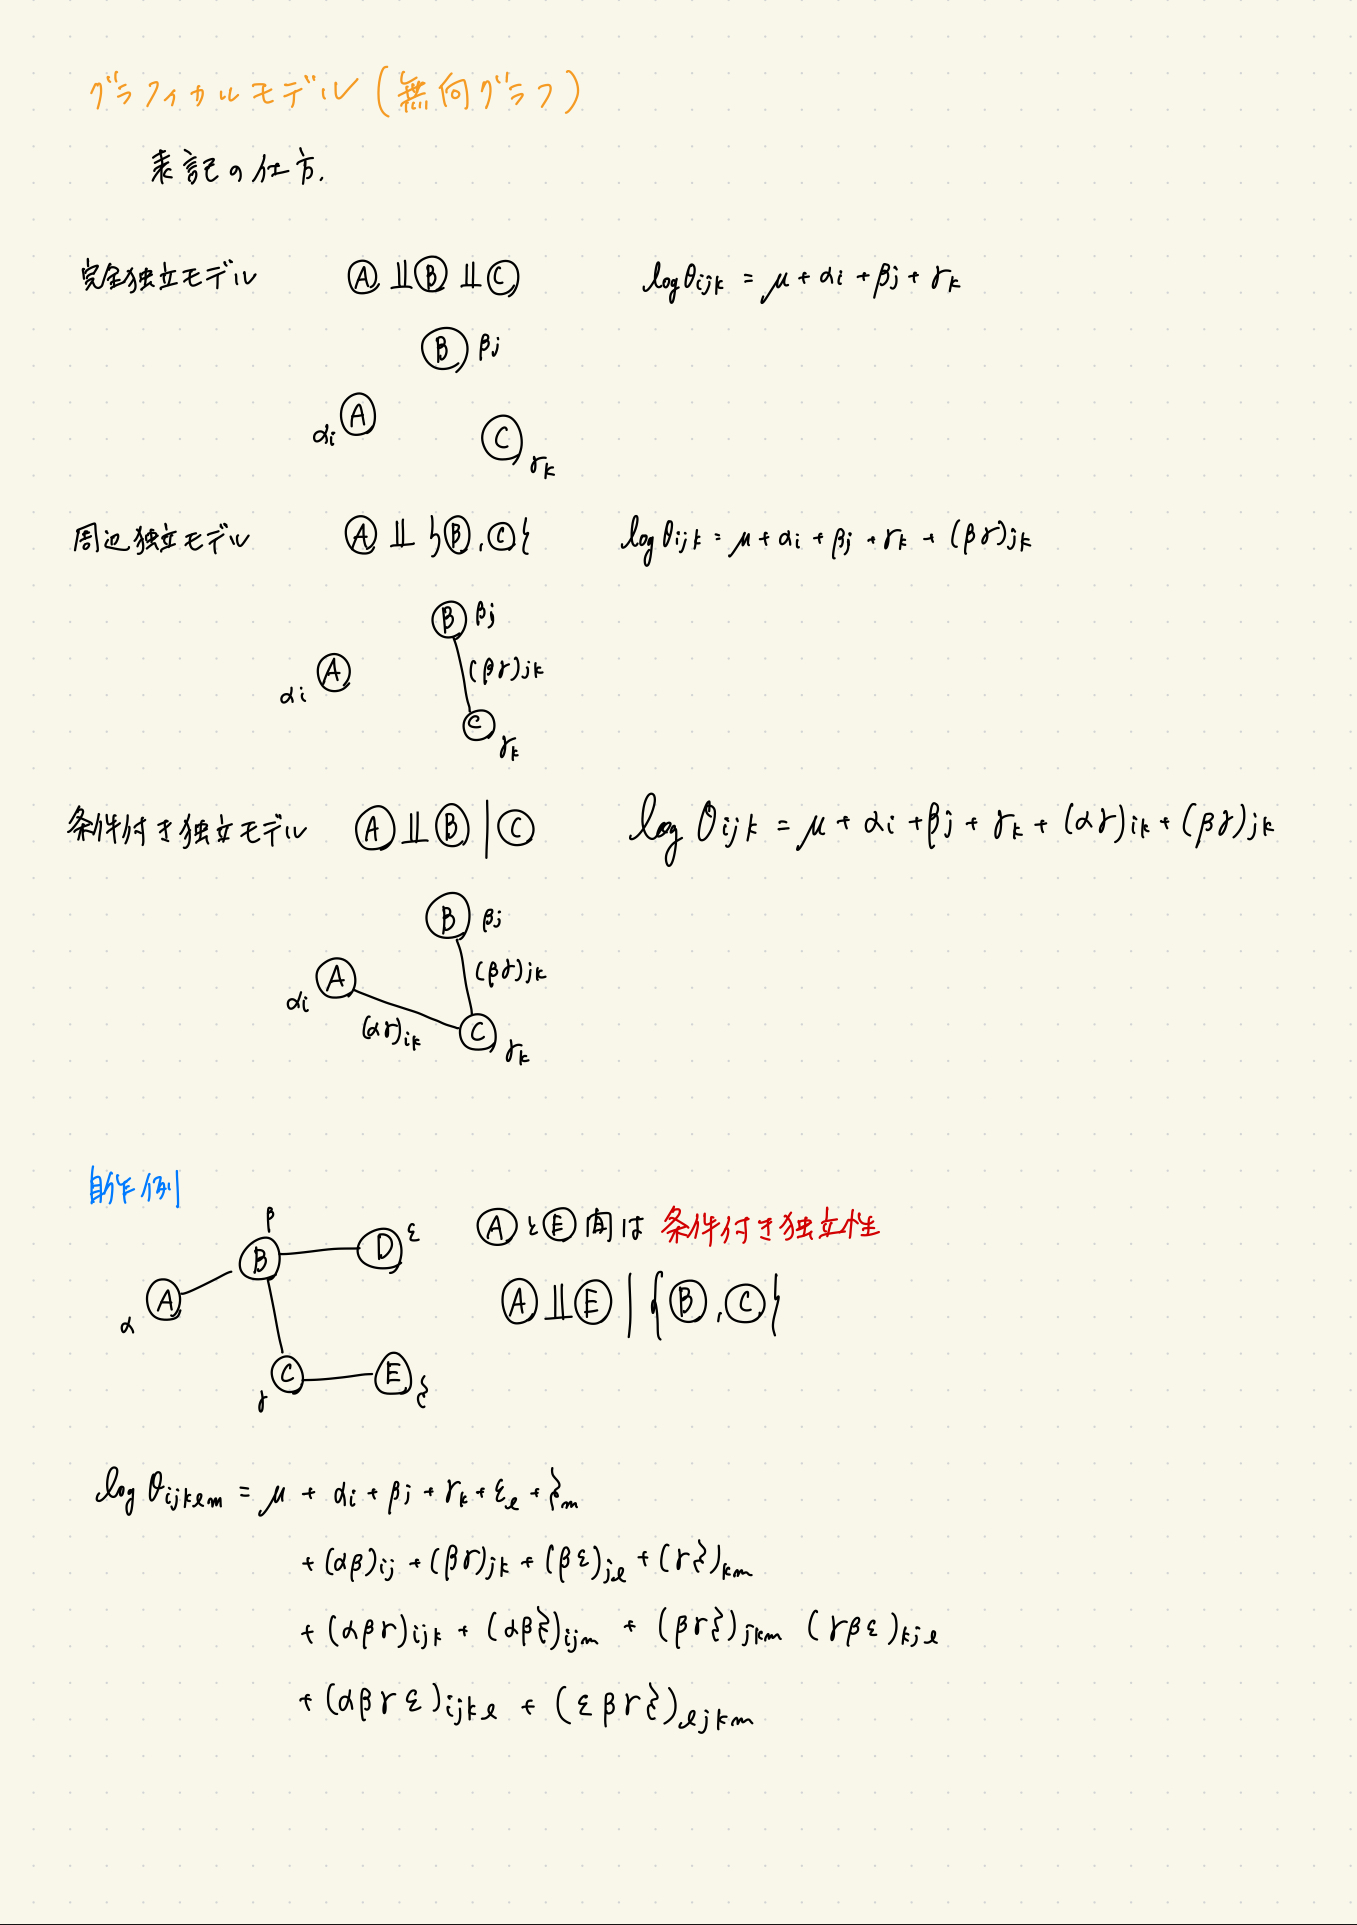 グラフィカルモデル(無向グラフ)
表記の仕方.
完全独立モデル Ⓐ ⫫ Ⓑ ⫫ Ⓒ logθijk = μ + αi + βj + γk
Ⓑ βj
αi Ⓐ
Ⓒ γk
周辺独立モデル Ⓐ ⫫ {Ⓑ, Ⓒ} logθijk = μ + αi + βj + γk + (βγ)jk
Ⓑ βj
αi Ⓐ (βγ)jk
Ⓒ γk
条件付き独立モデル Ⓐ ⫫ Ⓑ | Ⓒ logθijk = μ + αi + βj + γk + (αγ)ik + (βγ)jk
Ⓑ βj
αi Ⓐ (βγ)jk
(αγ)ik Ⓒ γk
自作例
β
Ⓑ Ⓓ ε
α Ⓐ
γ Ⓒ Ⓔ ξ
ⒶとⒺ間は 条件付き独立性
Ⓐ ⫫ Ⓔ | {Ⓑ, Ⓒ}
logθijklm = μ + αi + βj + γk + εl + ξm
+ (αβ)ij + (βγ)jk + (βε)jl + (γξ)km
+ (αβγ)ijk + (αβξ)ijm + (βγξ)jkm (γβε)kjl
+ (αβγε)ijkl + (εβγξ)ljkm